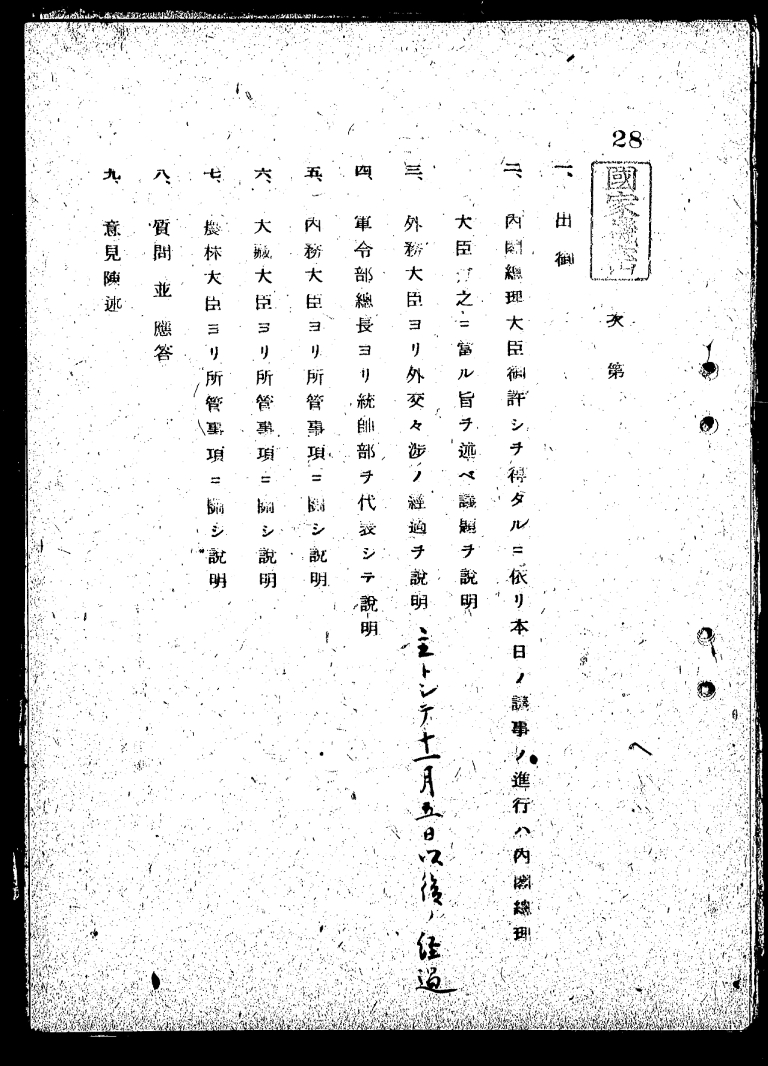 28
國家機密
次第
一、出御
二、內閣總理大臣御許シヲ得タルニ依リ本日ノ議事ノ進行ハ內閣總理
大臣ガ之ニ當ル旨ヲ述ベ議題ヲ說明
三、外務大臣ヨリ外交々涉ノ經過ヲ說明 主トシテ十一月五日以後ノ経過
四、軍令部總長ヨリ統帥部ヲ代表シテ說明
五、內務大臣ヨリ所管事項ニ關シ說明
六、大藏大臣ヨリ所管事項ニ關シ說明
七、農林大臣ヨリ所管事項ニ關シ說明
八、質問並應答
九、意見陳述